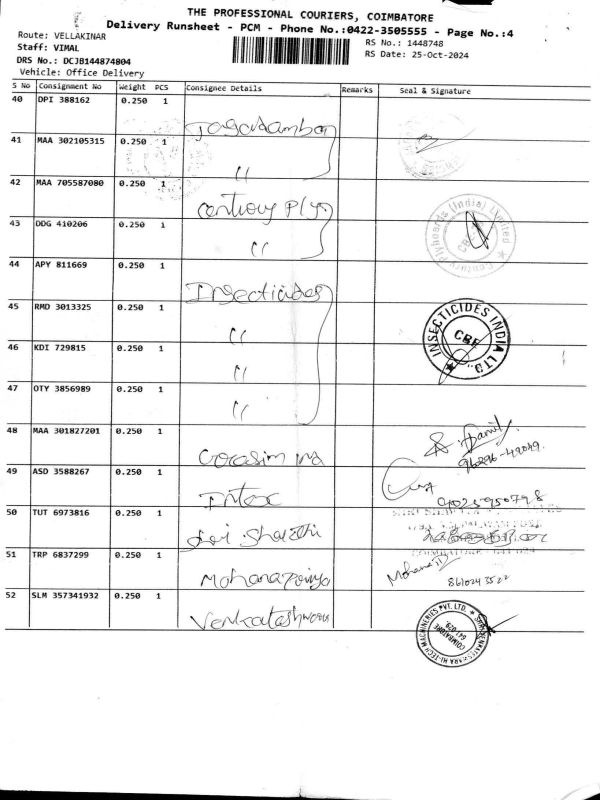 THE PROFESSIONAL COURIERS, COIMBATORE
Delivery Runsheet - PCM - Phone No.:0422-3505555 - Page No.:4
Route: VELLAKINAR
RS No.: 1448748
Staff: VIMAL
RS Date: 25-Oct-2024
DRS No.: DCJB144874804
Vehicle: Office Delivery
S No Consignment No Weight PCS Consignee Details Remarks Seal & Signature
40 DPI 388162 0.250 1 Jagadamba
41 MAA 302105315 0.250 1 "
42 MAA 705587080 0.250 1 Century Ply
Century Plyboards (India) Limited
CBE
43 DDG 410206 0.250 1 "
44 APY 811669 0.250 1 Insecticides
INSECTICIDES INDIA LTD.
CBE
45 RMD 3013325 0.250 1 "
46 KDI 729815 0.250 1 "
47 OTY 3856989 0.250 1 "
48 MAA 301827201 0.250 1
49 ASD 3588267 0.250 1 Intex
50 TUT 6973816 0.250 1 Sri Shakthi
51 TRP 6837299 0.250 1 Mohanapriya
Mohana
8610243522
52 SLM 357341932 0.250 1 Venkateshwara
HI-TECH MACHINERIES PVT. LTD.
COIMBATORE
641 029.